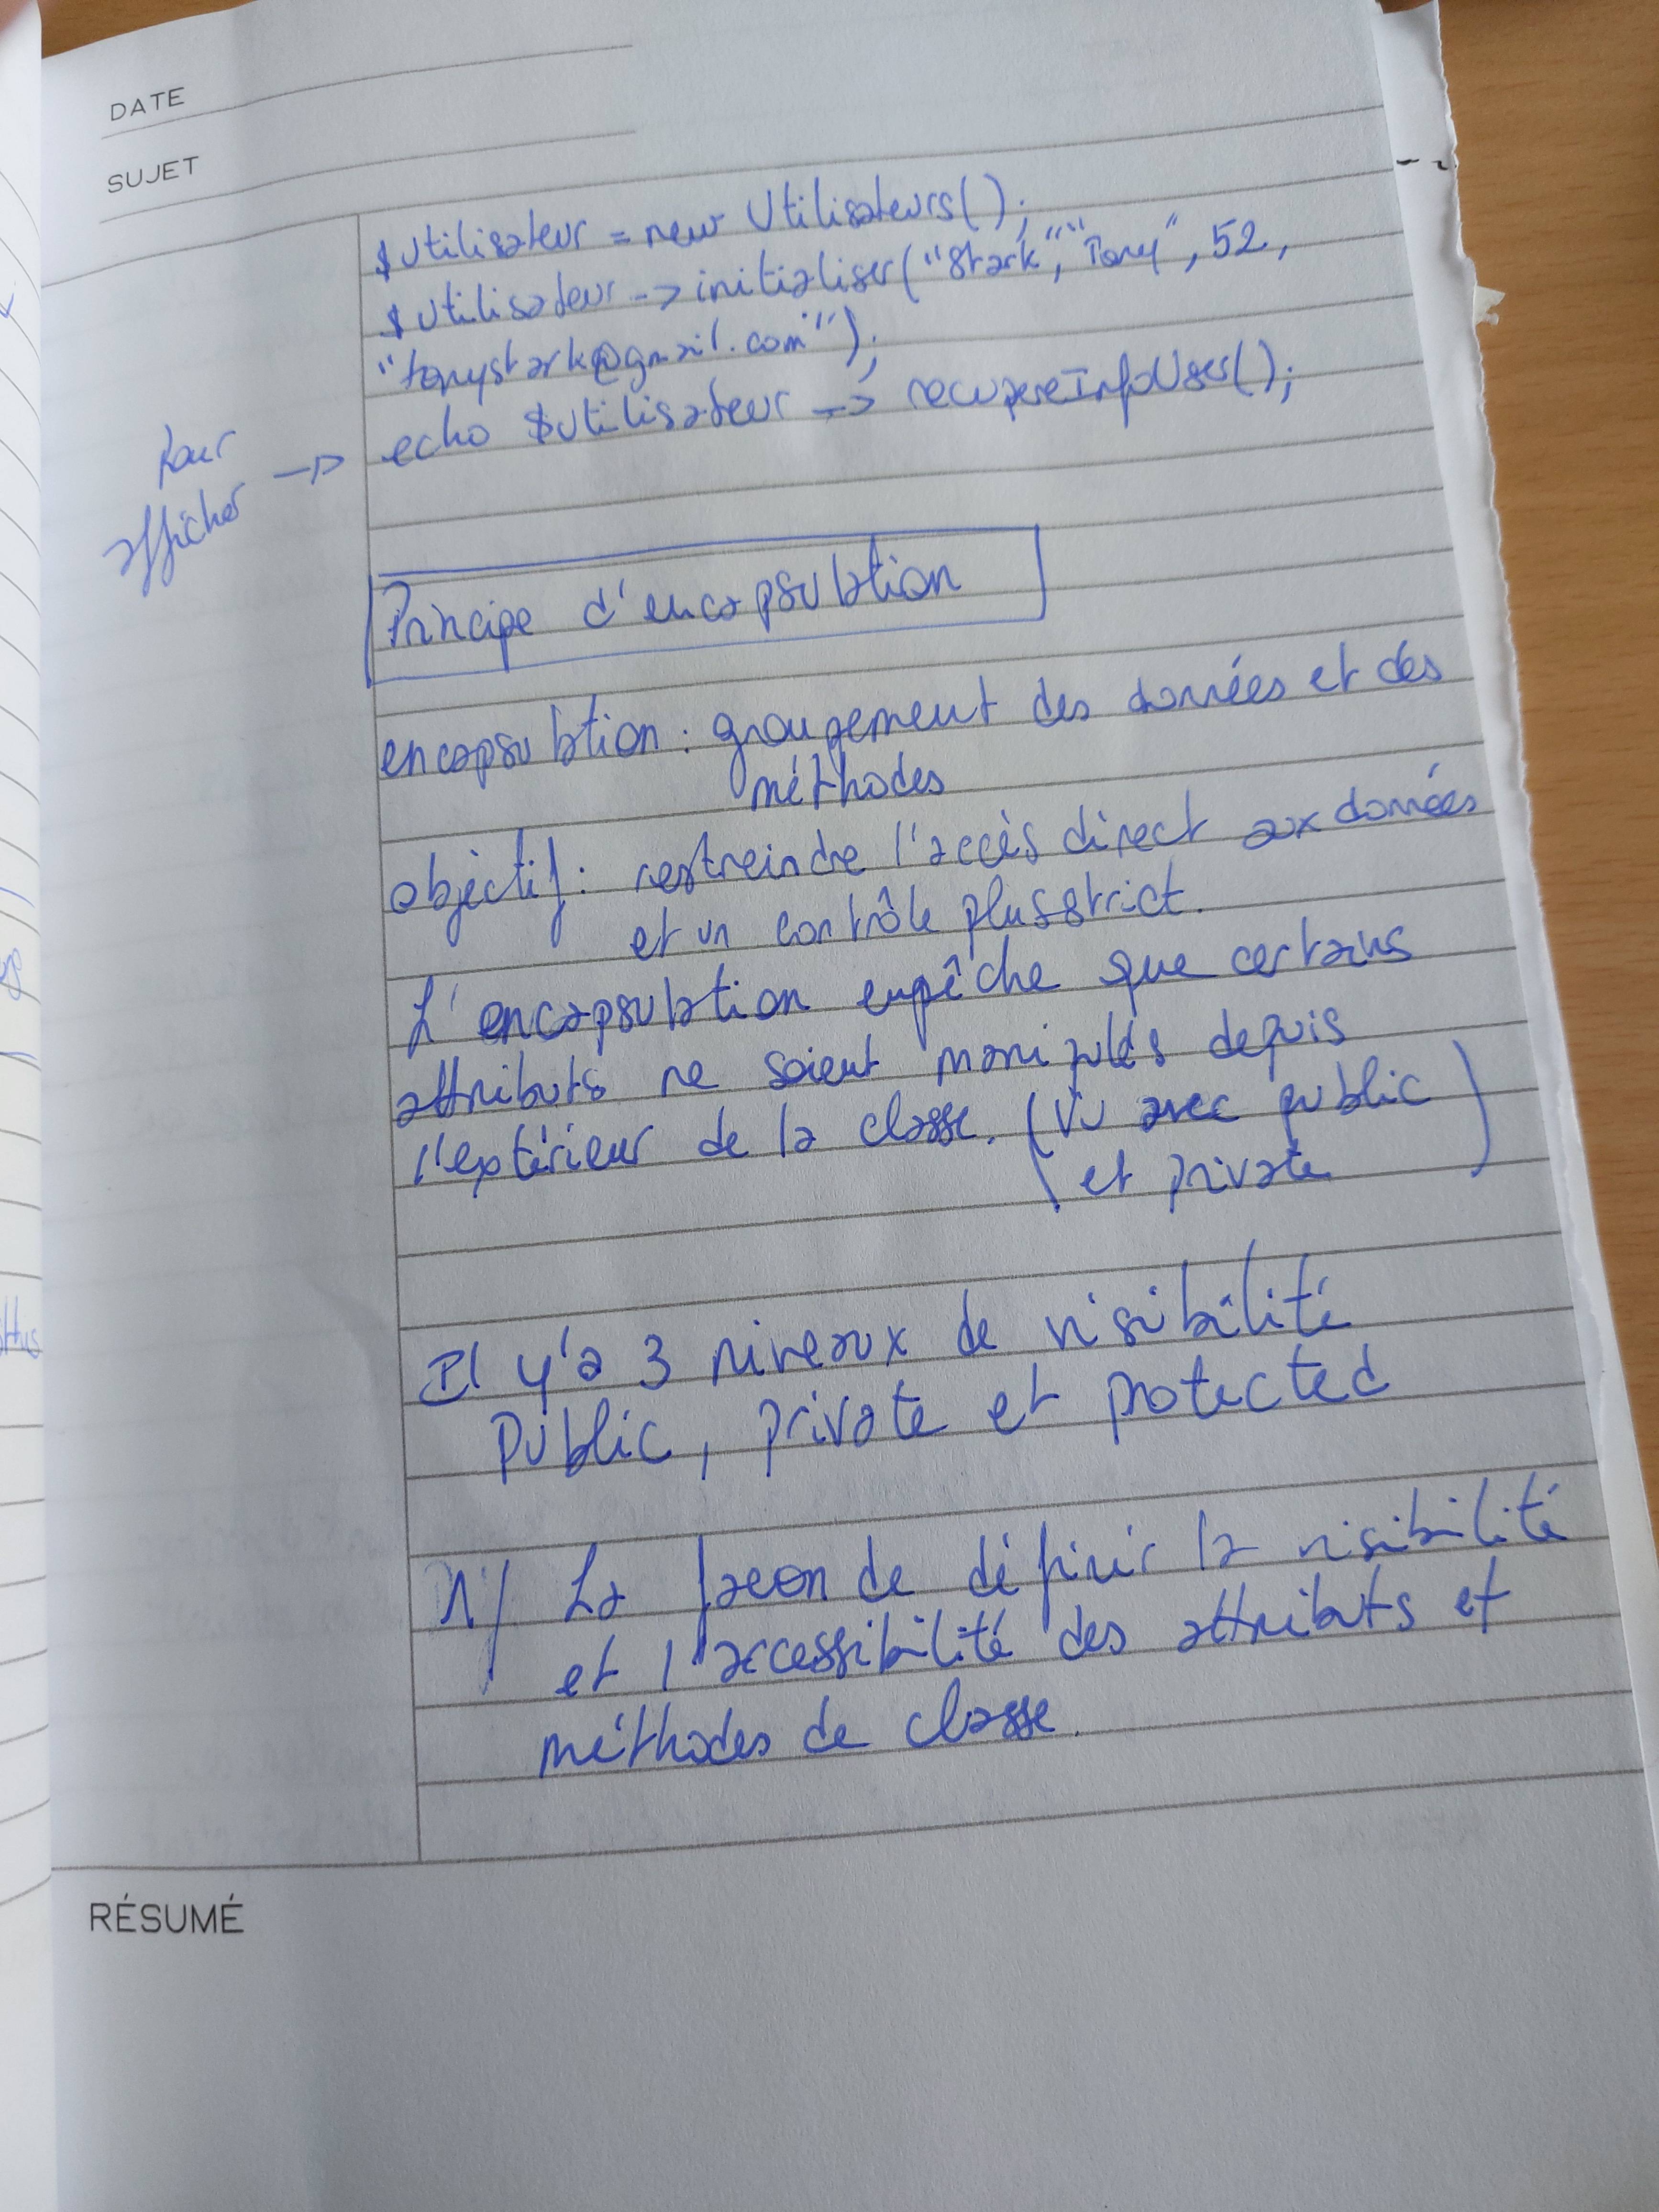 DATE
SUJET
$utilisateur = new Utilisateurs();
$utilisateur -> initialiser("Stark", "Tony", 52,
"tonystark@gmail.com");
pour
afficher -> echo $utilisateur -> recupereInfoUser();
Principe d'encapsulation
encapsulation : groupement des données et des
méthodes
objectif : restreindre l'accès direct aux données
et un contrôle plus strict.
L'encapsulation empêche que certains
attributs ne soient manipulés depuis
l'extérieur de la classe. (Vu avec public
et private)
Il y'a 3 niveaux de visibilité
public, private et protected
1/ La facon de définir la visibilité
et l'accessibilité des attributs et
méthodes de classe.
RÉSUMÉ